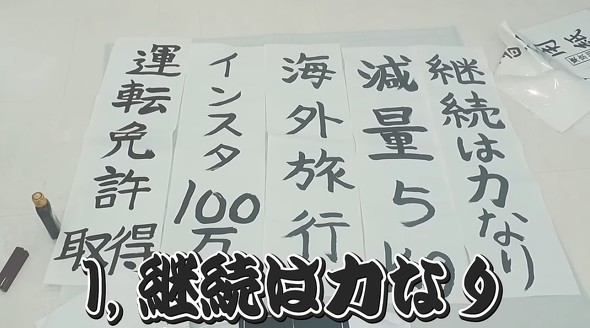 継続は力なり
減量5
海外旅行
インスタ100万
運転免許取得
1,継続は力なり